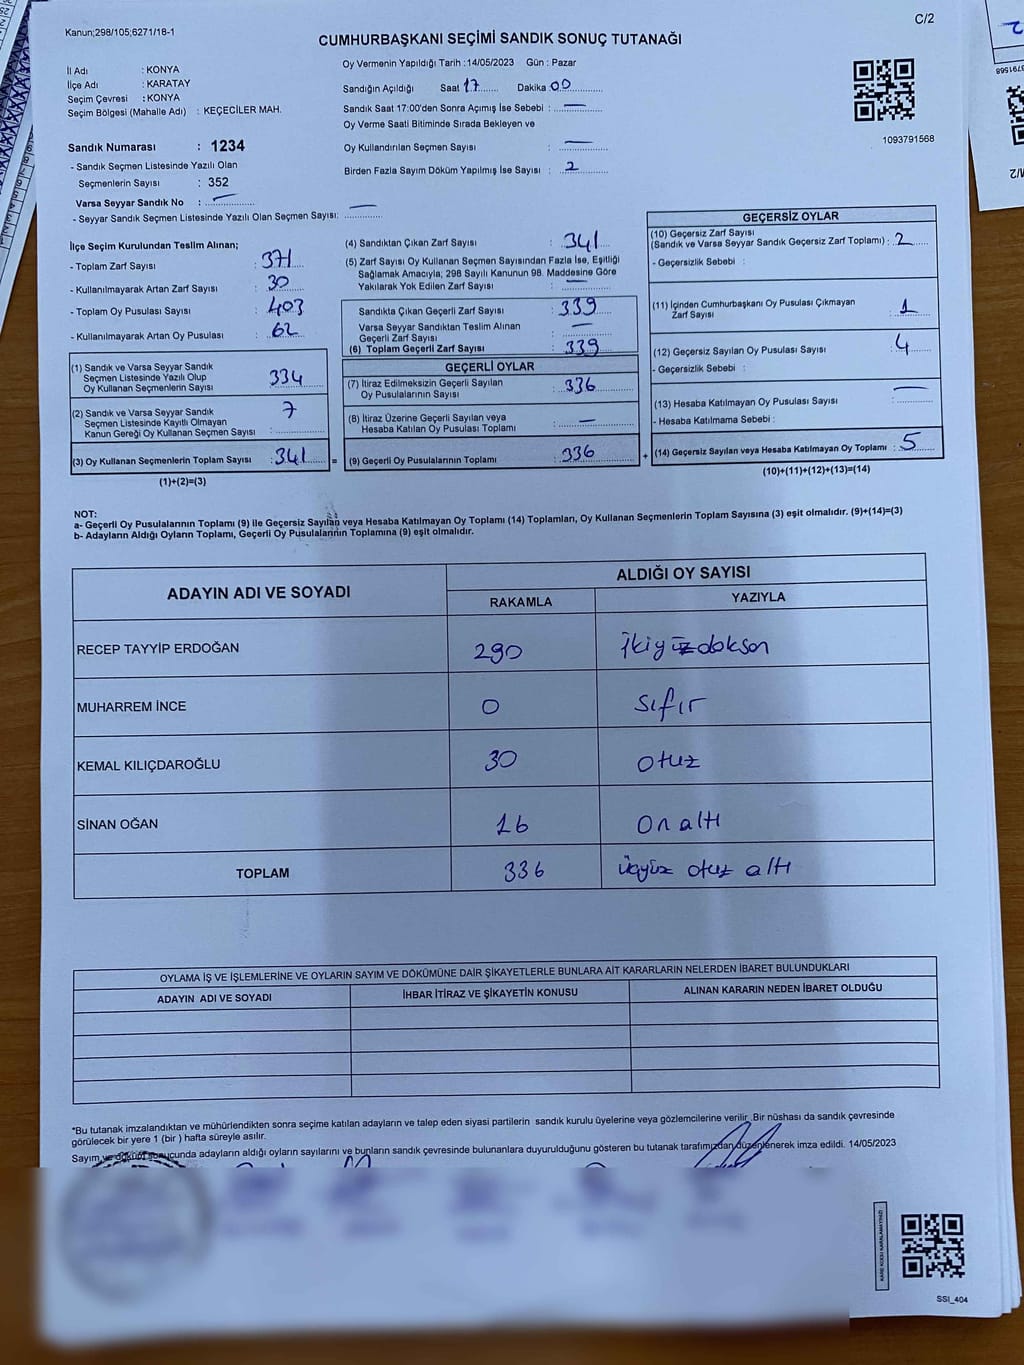 Kanun;298/105;6271/18-1
C/2
CUMHURBAŞKANI SEÇİMİ SANDIK SONUÇ TUTANAĞI
İl Adı : KONYA
İlçe Adı : KARATAY
Seçim Çevresi : KONYA
Seçim Bölgesi (Mahalle Adı) : KEÇECİLER MAH.
Oy Vermenin Yapıldığı Tarih :14/05/2023 Gün : Pazar
Sandığın Açıldığı Saat 17 Dakika 00
Sandık Saat 17:00'den Sonra Açımış İse Sebebi : —
Oy Verme Saati Bitiminde Sırada Bekleyen ve
Oy Kullandırılan Seçmen Sayısı : —
Birden Fazla Sayım Döküm Yapılmış İse Sayısı : 2
1093791568
Sandık Numarası : 1234
- Sandık Seçmen Listesinde Yazılı Olan
Seçmenlerin Sayısı : 352
Varsa Seyyar Sandık No : —
- Seyyar Sandık Seçmen Listesinde Yazılı Olan Seçmen Sayısı: —
İlçe Seçim Kurulundan Teslim Alınan;
- Toplam Zarf Sayısı : 371
- Kullanılmayarak Artan Zarf Sayısı : 30
- Toplam Oy Pusulası Sayısı : 403
- Kullanılmayarak Artan Oy Pusulası : 62
(1) Sandık ve Varsa Seyyar Sandık
Seçmen Listesinde Yazılı Olup
Oy Kullanan Seçmenlerin Sayısı : 334
(2) Sandık ve Varsa Seyyar Sandık
Seçmen Listesinde Kayıtlı Olmayan
Kanun Gereği Oy Kullanan Seçmen Sayısı : 7
(3) Oy Kullanan Seçmenlerin Toplam Sayısı : 341 =
(1)+(2)=(3)
(4) Sandıktan Çıkan Zarf Sayısı : 341
(5) Zarf Sayısı Oy Kullanan Seçmen Sayısından Fazla İse, Eşitliği
Sağlamak Amacıyla; 298 Sayılı Kanunun 98. Maddesine Göre
Yakılarak Yok Edilen Zarf Sayısı : —
Sandıkta Çıkan Geçerli Zarf Sayısı : 339
Varsa Seyyar Sandıktan Teslim Alınan
Geçerli Zarf Sayısı : —
(6) Toplam Geçerli Zarf Sayısı : 339
GEÇERLİ OYLAR
(7) İtiraz Edilmeksizin Geçerli Sayılan
Oy Pusulalarının Sayısı : 336
(8) İtiraz Üzerine Geçerli Sayılan veya
Hesaba Katılan Oy Pusulası Toplamı : —
(9) Geçerli Oy Pusulalarının Toplamı : 336 +
GEÇERSİZ OYLAR
(10) Geçersiz Zarf Sayısı
(Sandık ve Varsa Seyyar Sandık Geçersiz Zarf Toplamı) : 2
- Geçersizlik Sebebi :
(11) İçinden Cumhurbaşkanı Oy Pusulası Çıkmayan
Zarf Sayısı : 1
(12) Geçersiz Sayılan Oy Pusulası Sayısı : 4
- Geçersizlik Sebebi :
(13) Hesaba Katılmayan Oy Pusulası Sayısı : —
- Hesaba Katılmama Sebebi :
(14) Geçersiz Sayılan veya Hesaba Katılmayan Oy Toplamı : 5
(10)+(11)+(12)+(13)=(14)
NOT:
a- Geçerli Oy Pusulalarının Toplamı (9) ile Geçersiz Sayılan veya Hesaba Katılmayan Oy Toplamı (14) Toplamları, Oy Kullanan Seçmenlerin Toplam Sayısına (3) eşit olmalıdır. (9)+(14)=(3)
b- Adayların Aldığı Oyların Toplamı, Geçerli Oy Pusulalarının Toplamına (9) eşit olmalıdır.
ADAYIN ADI VE SOYADI ALDIĞI OY SAYISI
RAKAMLA YAZIYLA
RECEP TAYYİP ERDOĞAN 290 İkiyüzdoksan
MUHARREM İNCE 0 sıfır
KEMAL KILIÇDAROĞLU 30 otuz
SİNAN OĞAN 16 onaltı
TOPLAM 336 üçyüz otuz altı
OYLAMA İŞ VE İŞLEMLERİNE VE OYLARIN SAYIM VE DÖKÜMÜNE DAİR ŞİKAYETLERLE BUNLARA AİT KARARLARIN NELERDEN İBARET BULUNDUKLARI
ADAYIN ADI VE SOYADI İHBAR İTİRAZ VE ŞİKAYETİN KONUSU ALINAN KARARIN NEDEN İBARET OLDUĞU
*Bu tutanak imzalandıktan ve mühürlendikten sonra seçime katılan adayların ve talep eden siyasi partilerin sandık kurulu üyelerine veya gözlemcilerine verilir. Bir nüshası da sandık çevresinde
görülecek bir yere 1 (bir ) hafta süreyle asılır.
Sayım ve döküm sonucunda adayların aldığı oyların sayılarını ve bunların sandık çevresinde bulunanlara duyurulduğunu gösteren bu tutanak tarafımızdan düzenlenerek imza edildi. 14/05/2023
KARE KODU KARALAMAYINIZ!
SSI_404